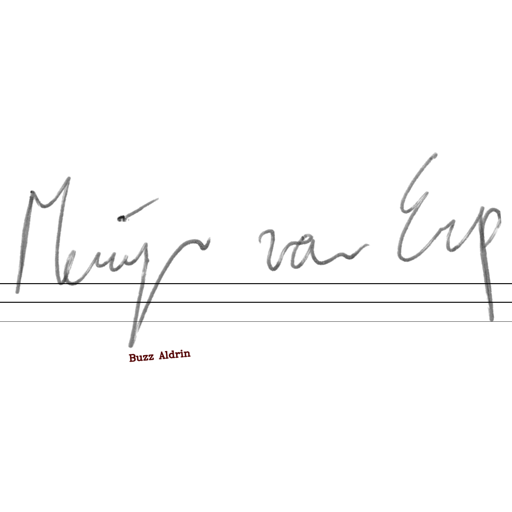 Merijn van Erp
Buzz Aldrin